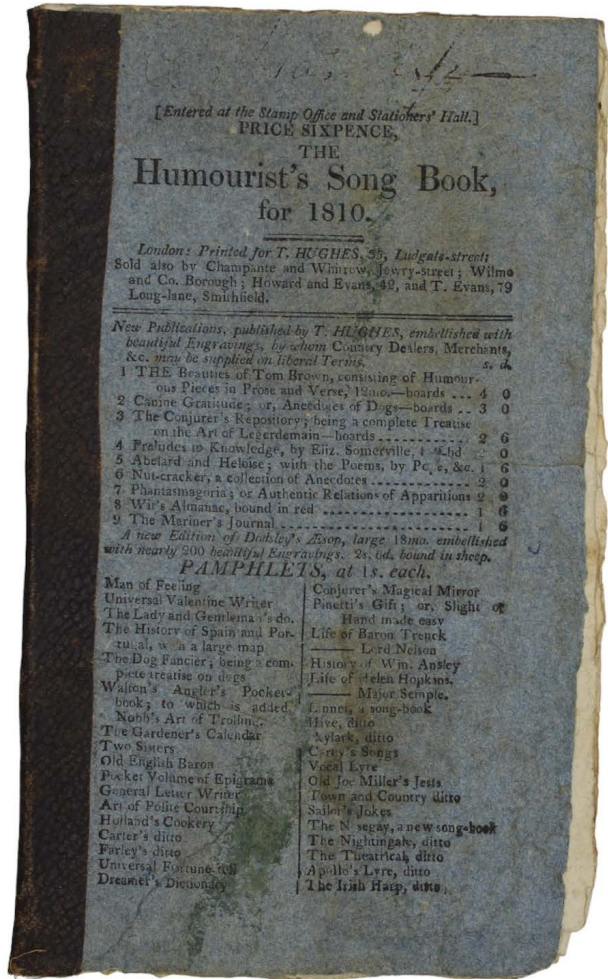 [Entered at the Stamp Office and Stationers' Hall.]
PRICE SIXPENCE,
THE
Humourist's Song Book,
for 1810.
London: Printed for T. HUGHES, 35, Ludgate-street;
Sold also by Champante and Whitrow, Jewry-street; Wilmo
and Co. Borough; Howard and Evans, 42, and T. Evans, 79
Long-lane, Smithfield.
New Publications, published by T. HUGHES, embellished with
beautiful Engravings, by whom Country Dealers, Merchants,
&c. may be supplied on liberal Terms. s. d.
1 THE Beauties of Tom Brown, consisting of Humour-
ous Pieces in Prose and Verse, 12mo.—boards ... 4 0
2 Canine Gratitude; or, Anecdotes of Dogs—boards .. 3 0
3 The Conjurer's Repository; being a complete Treatise
on the Art of Legerdemain—boards ............ 2 6
4 Preludes to Knowledge, by Eliz. Somerville, 0
5 Abelard and Heloise; with the Poems, by Pope, &c. 1 6
6 Nut-cracker, a collection of Anecdotes ............ 2 0
7 Phantasmagoria; or Authentic Relations of Apparitions 2
8 Wit's Almanac, bound in red .................. 1 6
9 The Mariner's Journal ...................... 1 6
A new Edition of Dodsley's Æsop, large 18mo. embellished
with nearly 200 beautiful Engravings. 2s. 6d. bound in sheep.
PAMPHLETS, at 1s. each.
Man of Feeling
Universal Valentine Writer
The Lady and Gentleman's do.
The History of Spain and Por-
tugal, with a large map
The Dog Fancier; being a com-
plete treatise on dogs
Walton's Angler's Pocket-
book; to which is added,
Nobb's Art of Trolling.
The Gardener's Calendar
Two Sisters
Old English Baron
Pocket Volume of Epigrams
General Letter Writer
Art of Polite Courtship
Holland's Cookery
Carter's ditto
Farley's ditto
Universal Fortune
Dreamer's Dictionary
Conjurer's Magical Mirror
Pinetti's Gift; or, Slight of
Hand made easy
Life of Baron Trenck
—— Lord Nelson
History of Wm. Ansley
Life of Helen Hopkins.
—— Major Semple.
Linnet, a song-book
Hive, ditto
Skylark, ditto
Carey's Songs
Vocal Lyre
Old Joe Miller's Jests
Town and Country ditto
Sailor's Jokes
The Nosegay, a new song-book
The Nightingale, ditto
The Theatrical, ditto
Apollo's Lyre, ditto
The Irish Harp, ditto,